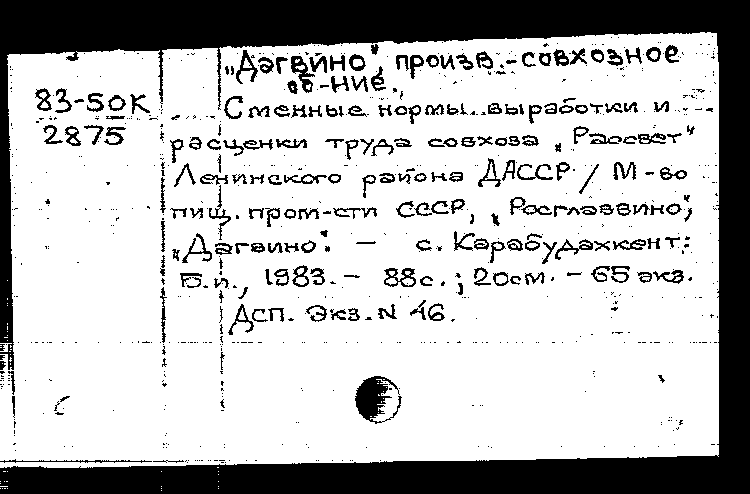 „Дагвино", произв.-совхозное
об-ние.
83-50К
2875
Сменные нормы выработки и
расценки труда совхоза „Рассвет"
Ленинского района ДАССР / М-во
пищ. пром-сти СССР, „Росглаввино",
„Дагвино". — с. Карабудахкент:
Б.и., 1983. - 88с.; 20см. - 65 экз.
Дсп. Экз. N 46.